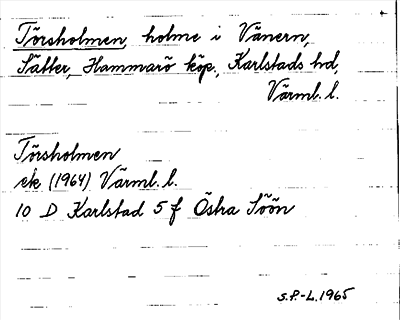 Törsholmen holme i Vänern,
Sätter, Hammarö köp., Karlstads hd,
Värml. l.
Törsholmen
ek (1964) Värml. l.
10 D Karlstad 5 f Östra Söön
S.P.-L. 1965